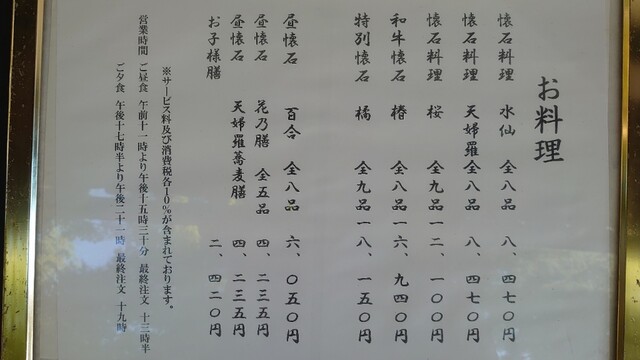 お料理
懐石料理 水仙 全八品 八、四七〇円
懐石料理 天婦羅 全八品 八、四七〇円
懐石料理 桜 全九品 一二、一〇〇円
和牛懐石 椿 全八品 一六、九四〇円
特別懐石 橘 全九品 一八、一五〇円
昼懐石 百合 全八品 六、〇五〇円
昼懐石 花乃膳 全五品 四、二三五円
昼懐石 天婦羅蕎麦膳 四、二三五円
お子様膳 二、四二〇円
※サービス料及び消費税各10%が含まれております。
営業時間 ご昼食 午前十一時より午後十五時三十分 最終注文 十三時半
ご夕食 午後十七時半より午後二十一時 最終注文 十九時